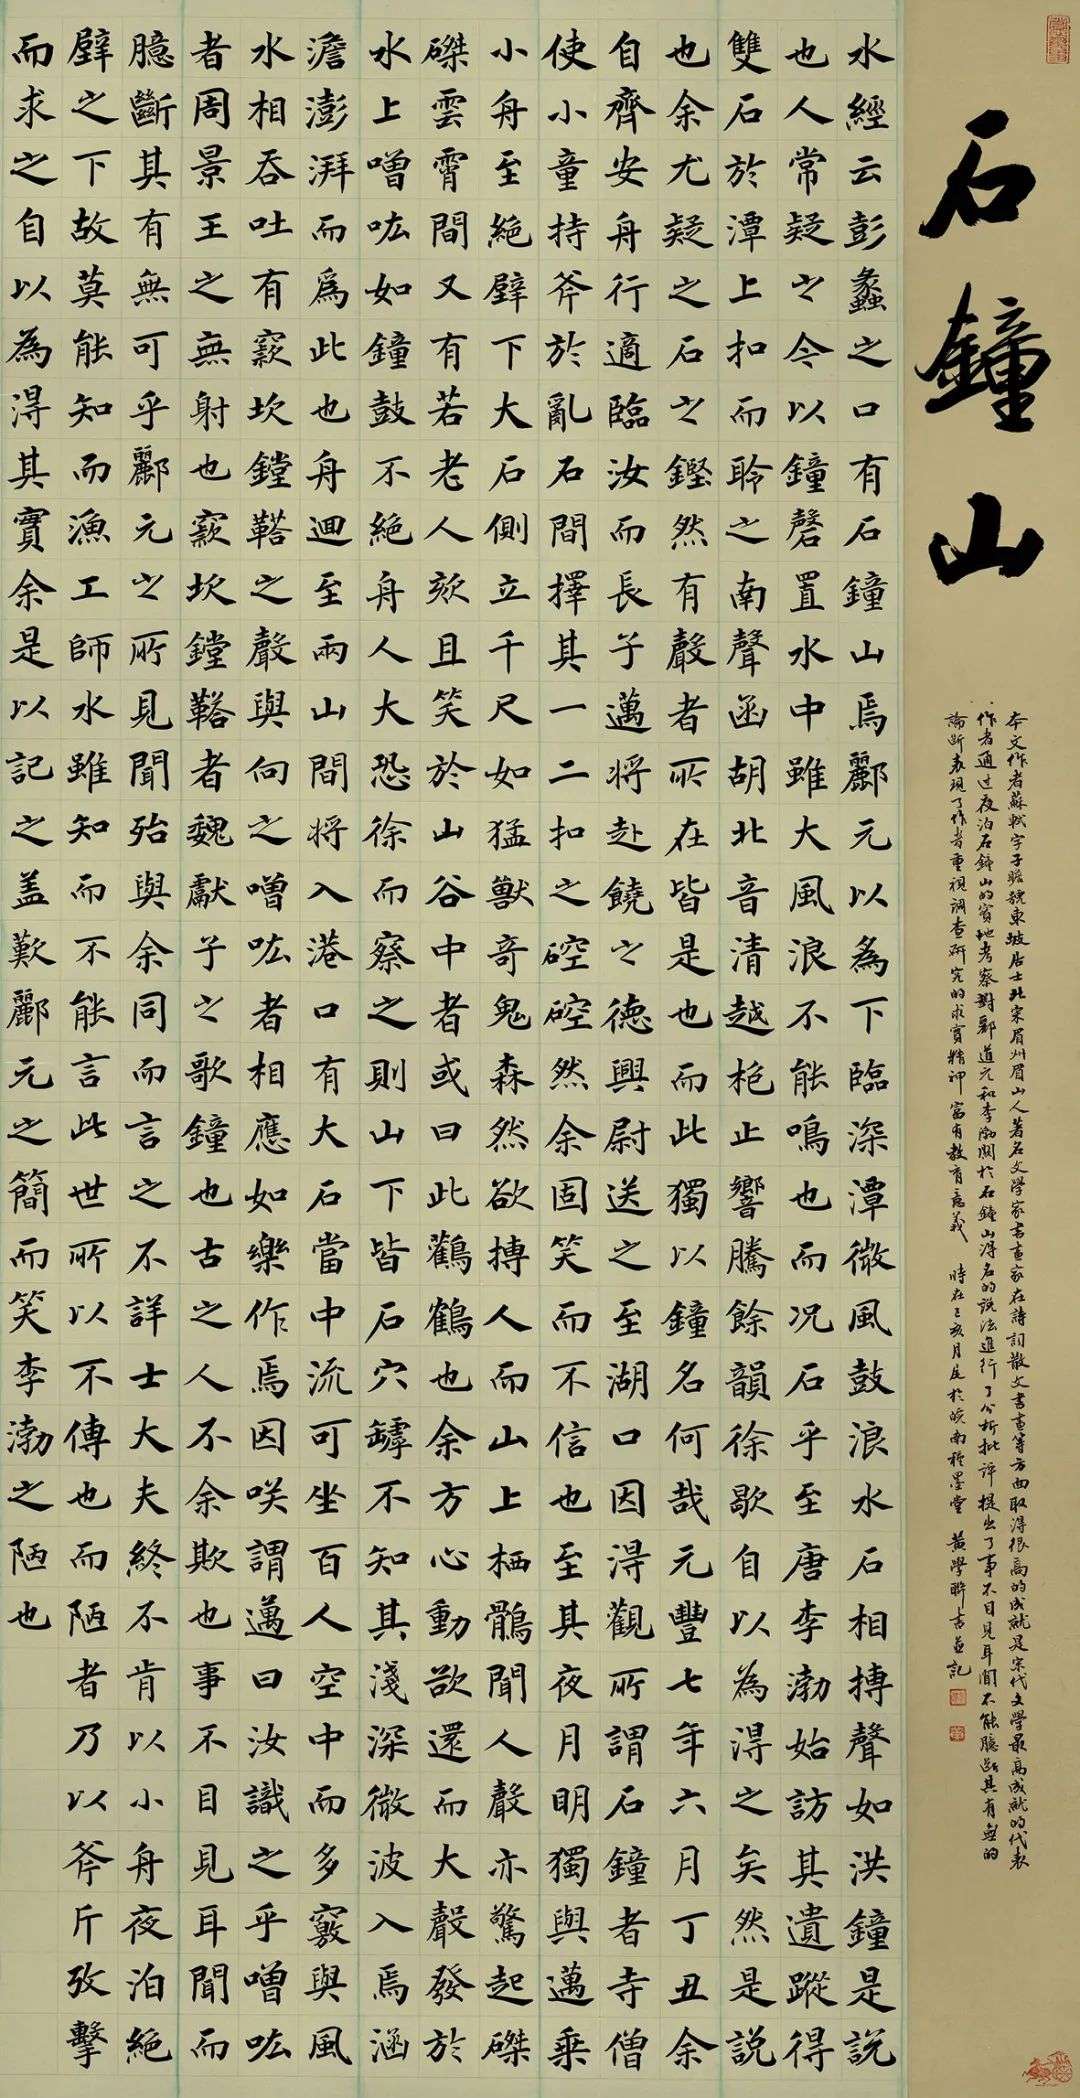 石鐘山
水經云彭蠡之口有石鐘山焉酈元以為下臨深潭微風鼓浪水石相搏聲如洪鐘是說
也人常疑之今以鐘磬置水中雖大風浪不能鳴也而况石乎至唐李渤始訪其遺蹤得
雙石於潭上扣而聆之南聲函胡北音清越枹止響騰餘韻徐歇自以為得之矣然是說
也余尤疑之石之鏗然有聲者所在皆是也而此獨以鐘名何哉元豐七年六月丁丑余
自齊安舟行適臨汝而長子邁將赴饒之德興尉送之至湖口因得觀所謂石鐘者寺僧
使小童持斧於亂石間擇其一二扣之硿硿然余固笑而不信也至其夜月明獨與邁乘
小舟至絕壁下大石側立千尺如猛獸奇鬼森然欲搏人而山上栖鶻聞人聲亦驚起磔
磔雲霄間又有若老人欬且笑於山谷中者或曰此鸛鶴也余方心動欲還而大聲發於
水上噌吰如鐘鼓不絕舟人大恐徐而察之則山下皆石穴罅不知其淺深微波入焉涵
澹澎湃而爲此也舟迴至兩山間將入港口有大石當中流可坐百人空中而多竅與風
水相吞吐有窾坎鏜鞳之聲與向之噌吰者相應如樂作焉因咲謂邁曰汝識之乎噌吰
者周景王之無射也窾坎鏜鞳者魏獻子之歌鐘也古之人不余欺也事不目見耳聞而
臆斷其有無可乎酈元之所見聞殆與余同而言之不詳士大夫終不肯以小舟夜泊絕
壁之下故莫能知而漁工師水雖知而不能言此世所以不傳也而陋者乃以斧斤攷擊
而求之自以為得其實余是以記之盖歎酈元之簡而笑李渤之陋也
本文作者蘇軾字子瞻號東坡居士北宋眉州眉山人著名文學家書畫家在詩詞散文書畫等方面取得很高的成就是宋代文學最高成就的代表
作者通过夜泊石鐘山的實地考察對酈道元和李渤關於石鐘山得名的說法進行了分析批評提出了事不目見耳聞不能臆斷其有無的
論斷表現了作者重視調查研究的求實精神富有教育意義 時在己亥月尾於皖南 墨堂 黃學聯書並記